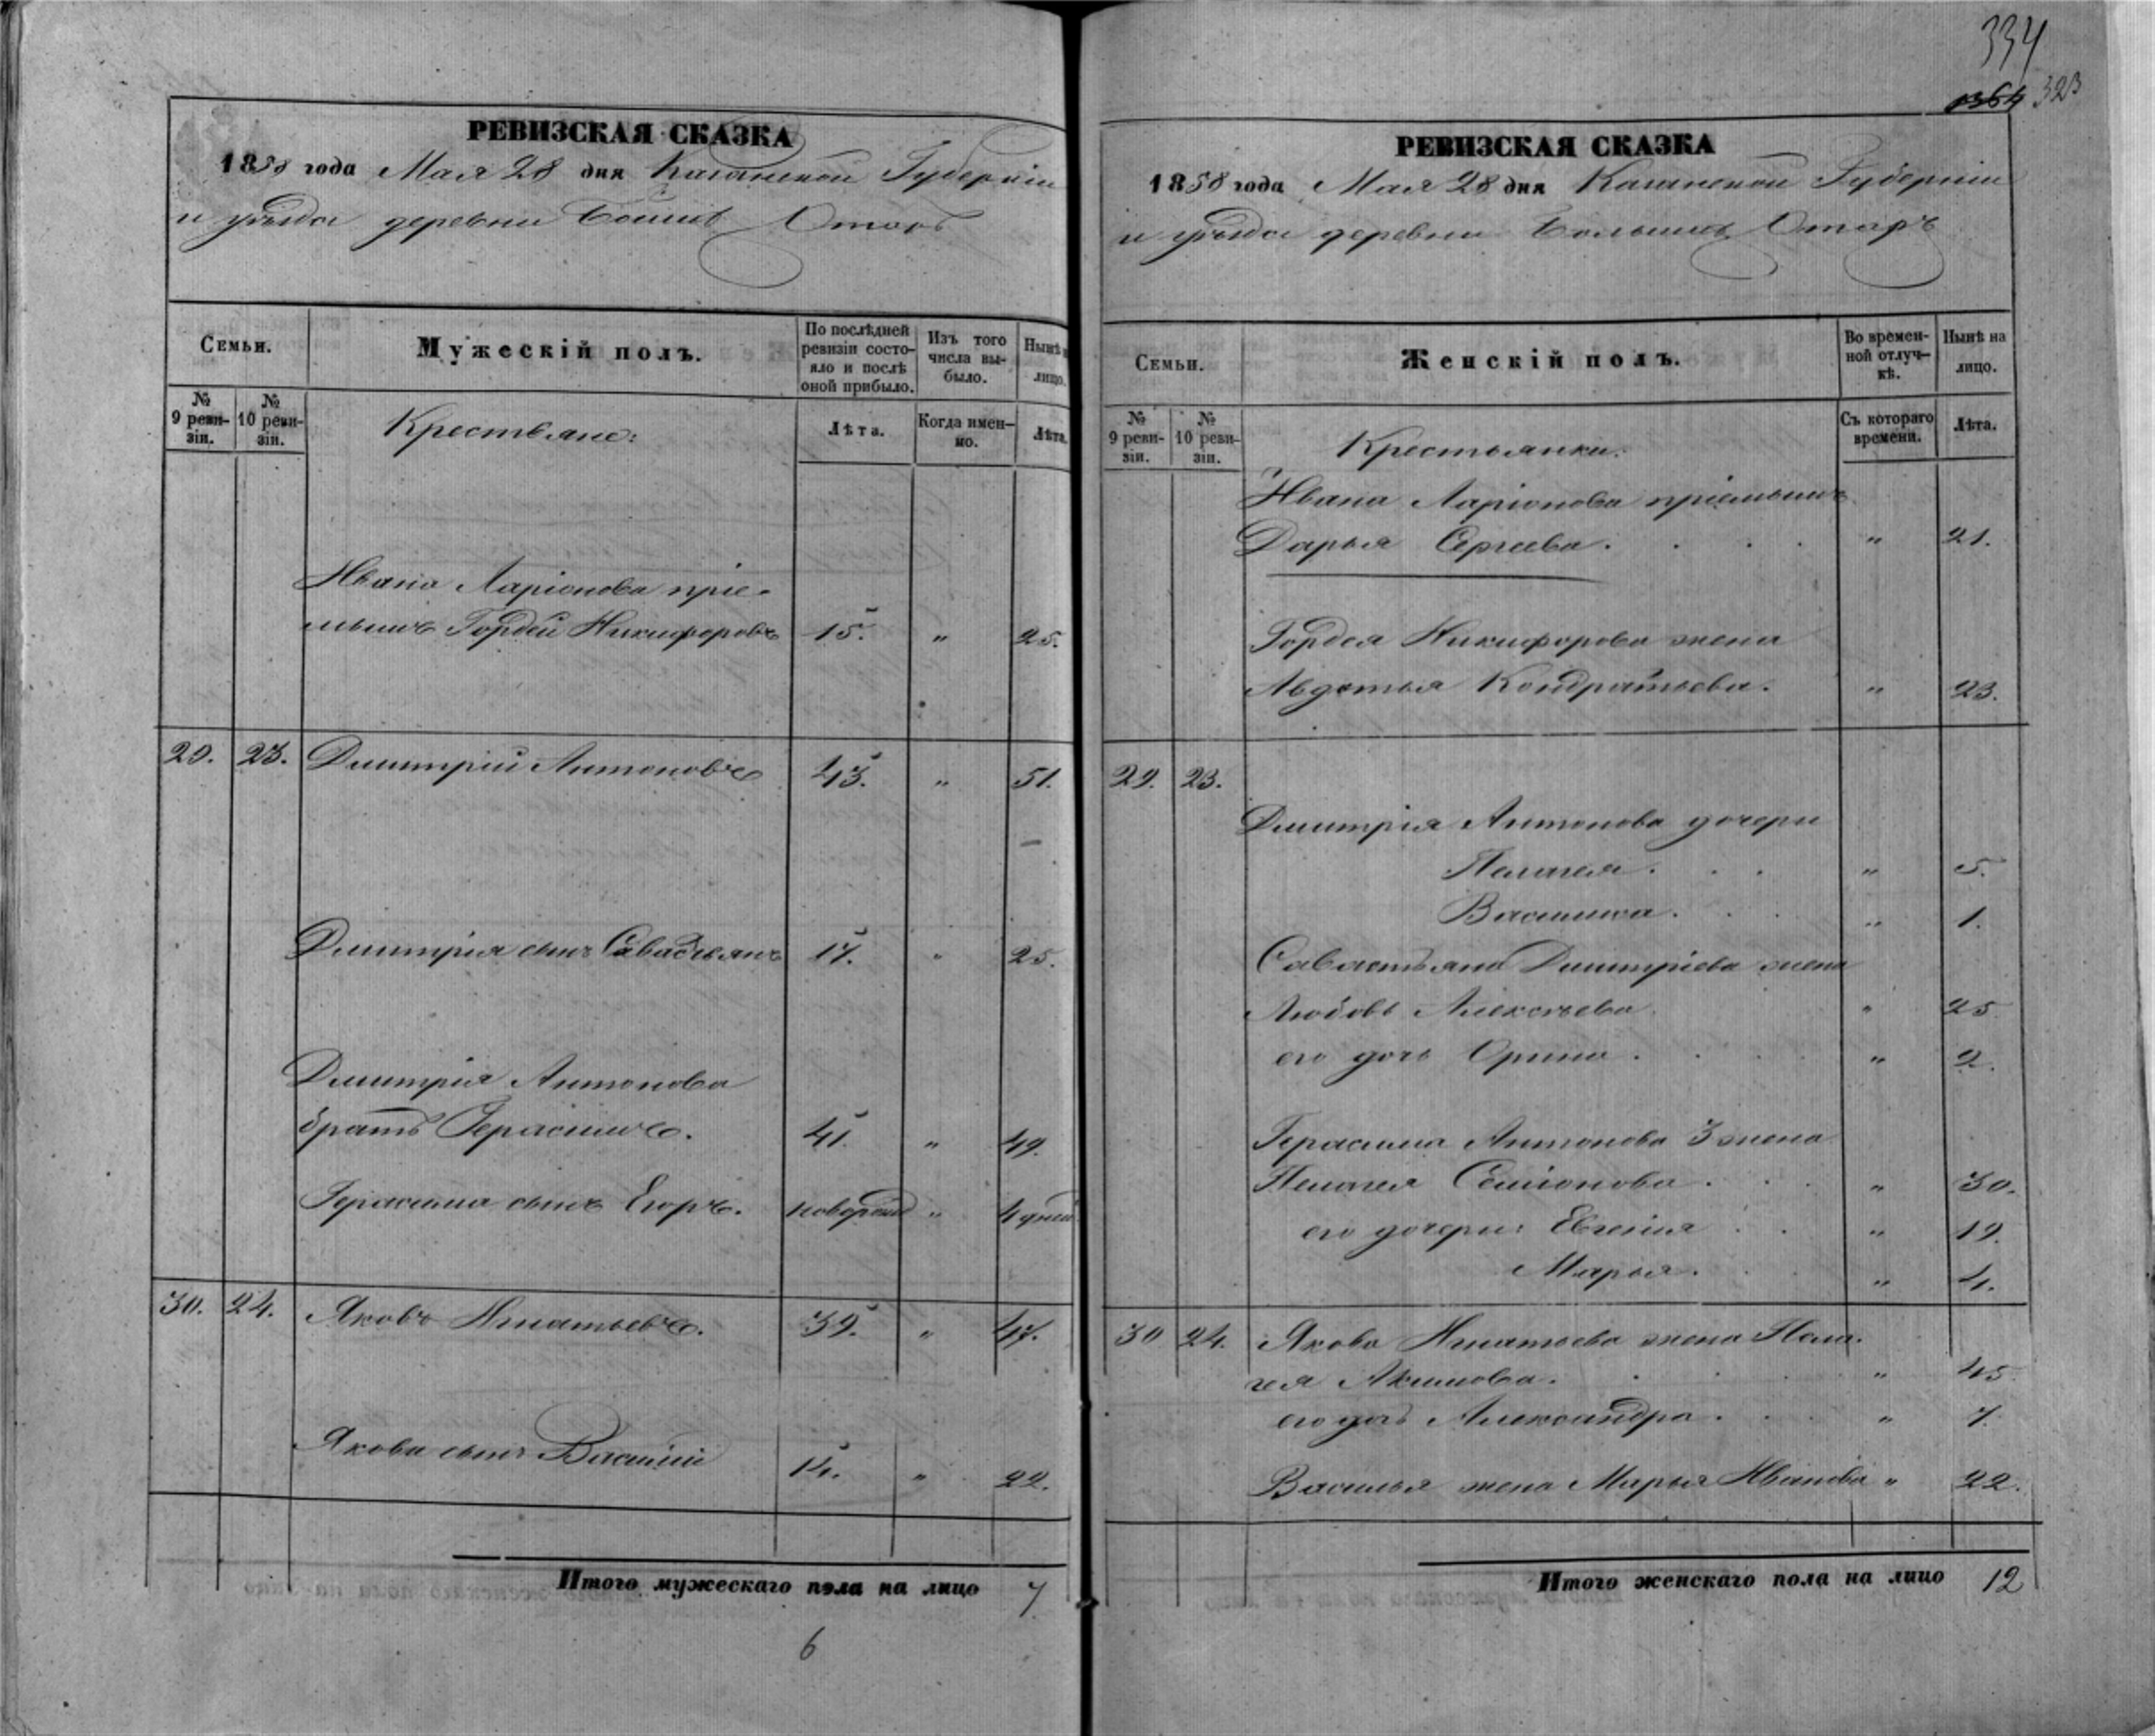 334
364 323
РЕВИЗСКАЯ СКАЗКА
1858 года Мая 28 дня Казанской Губерніи
и уѣзда деревни Больш Отаръ
Семьи.
Мужескій полъ.
По послѣдней ревизіи состояло и послѣ оной прибыло.
Изъ того числа выбыло.
Нынѣ на лицо.
№ 9 ревизіи.
№ 10 ревизіи.
Крестьяне:
Лѣта.
Когда именно.
Лѣта.
Ивана Ларіонова пріе-
мышъ Гордей Никифоровъ 15. " 25.
29. 23. Димитрій Антоновъ 43. " 51.
Димитрія сынъ Савастьянъ 17. " 25.
Димитрія Антонова
братъ Герасимъ. 41. " 49.
Герасима сынъ Егоръ. новорожд " 4 дней
30. 24. Яковъ Игнатьевъ. 39. " 47.
Якова сынъ Василій 14. " 22.
Итого мужескаго пола на лицо 7
6
РЕВИЗСКАЯ СКАЗКА
1858 года Мая 28 дня Казанской Губерніи
и уѣзда деревни Большихъ Отаръ
Семьи.
Женскій полъ.
Во временной отлучкѣ.
Нынѣ на лицо.
№ 9 ревизіи.
№ 10 ревизіи.
Крестьянки:
Съ котораго времени.
Лѣта.
Ивана Ларіонова пріемышъ
Дарья Сергеева. " 21.
Гордея Никифорова жена
Авдотья Кондратьева. " 23.
29. 23.
Димитрія Антонова дочери
Пелагея. " 5.
Василиса. " 1.
Савастьяна Димитріева жена
Любовь Алексѣева " 25
его дочь Орина. " 2.
Герасима Антонова 3 жена
Пелагея Семіонова. " 30.
его дочери: Евгенія " 19.
Марья. " 4.
30 24. Якова Игнатьева жена Пела-
гея Акимова. " 45.
его дочь Александра. " 7.
Василья жена Марья Иванова " 22.
Итого женскаго пола на лицо 12